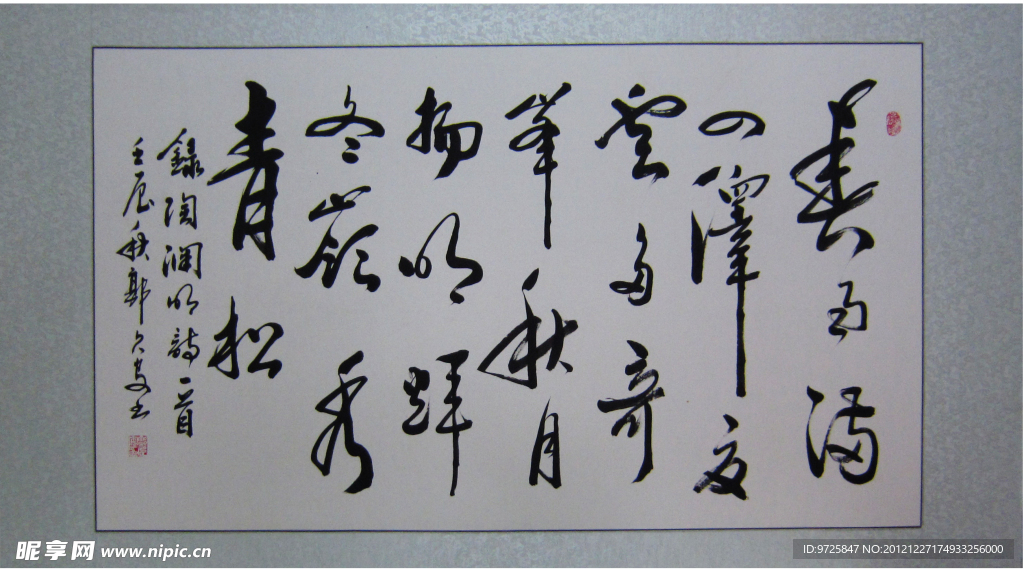 春雨滿
四澤夏
雲多奇
峯秋月
揚明輝
冬嶺秀
青松
錄陶淵明詩一首
壬辰秋郭
昵享网 www.nipic.cn
ID:9725847 NO:20121227174933256000